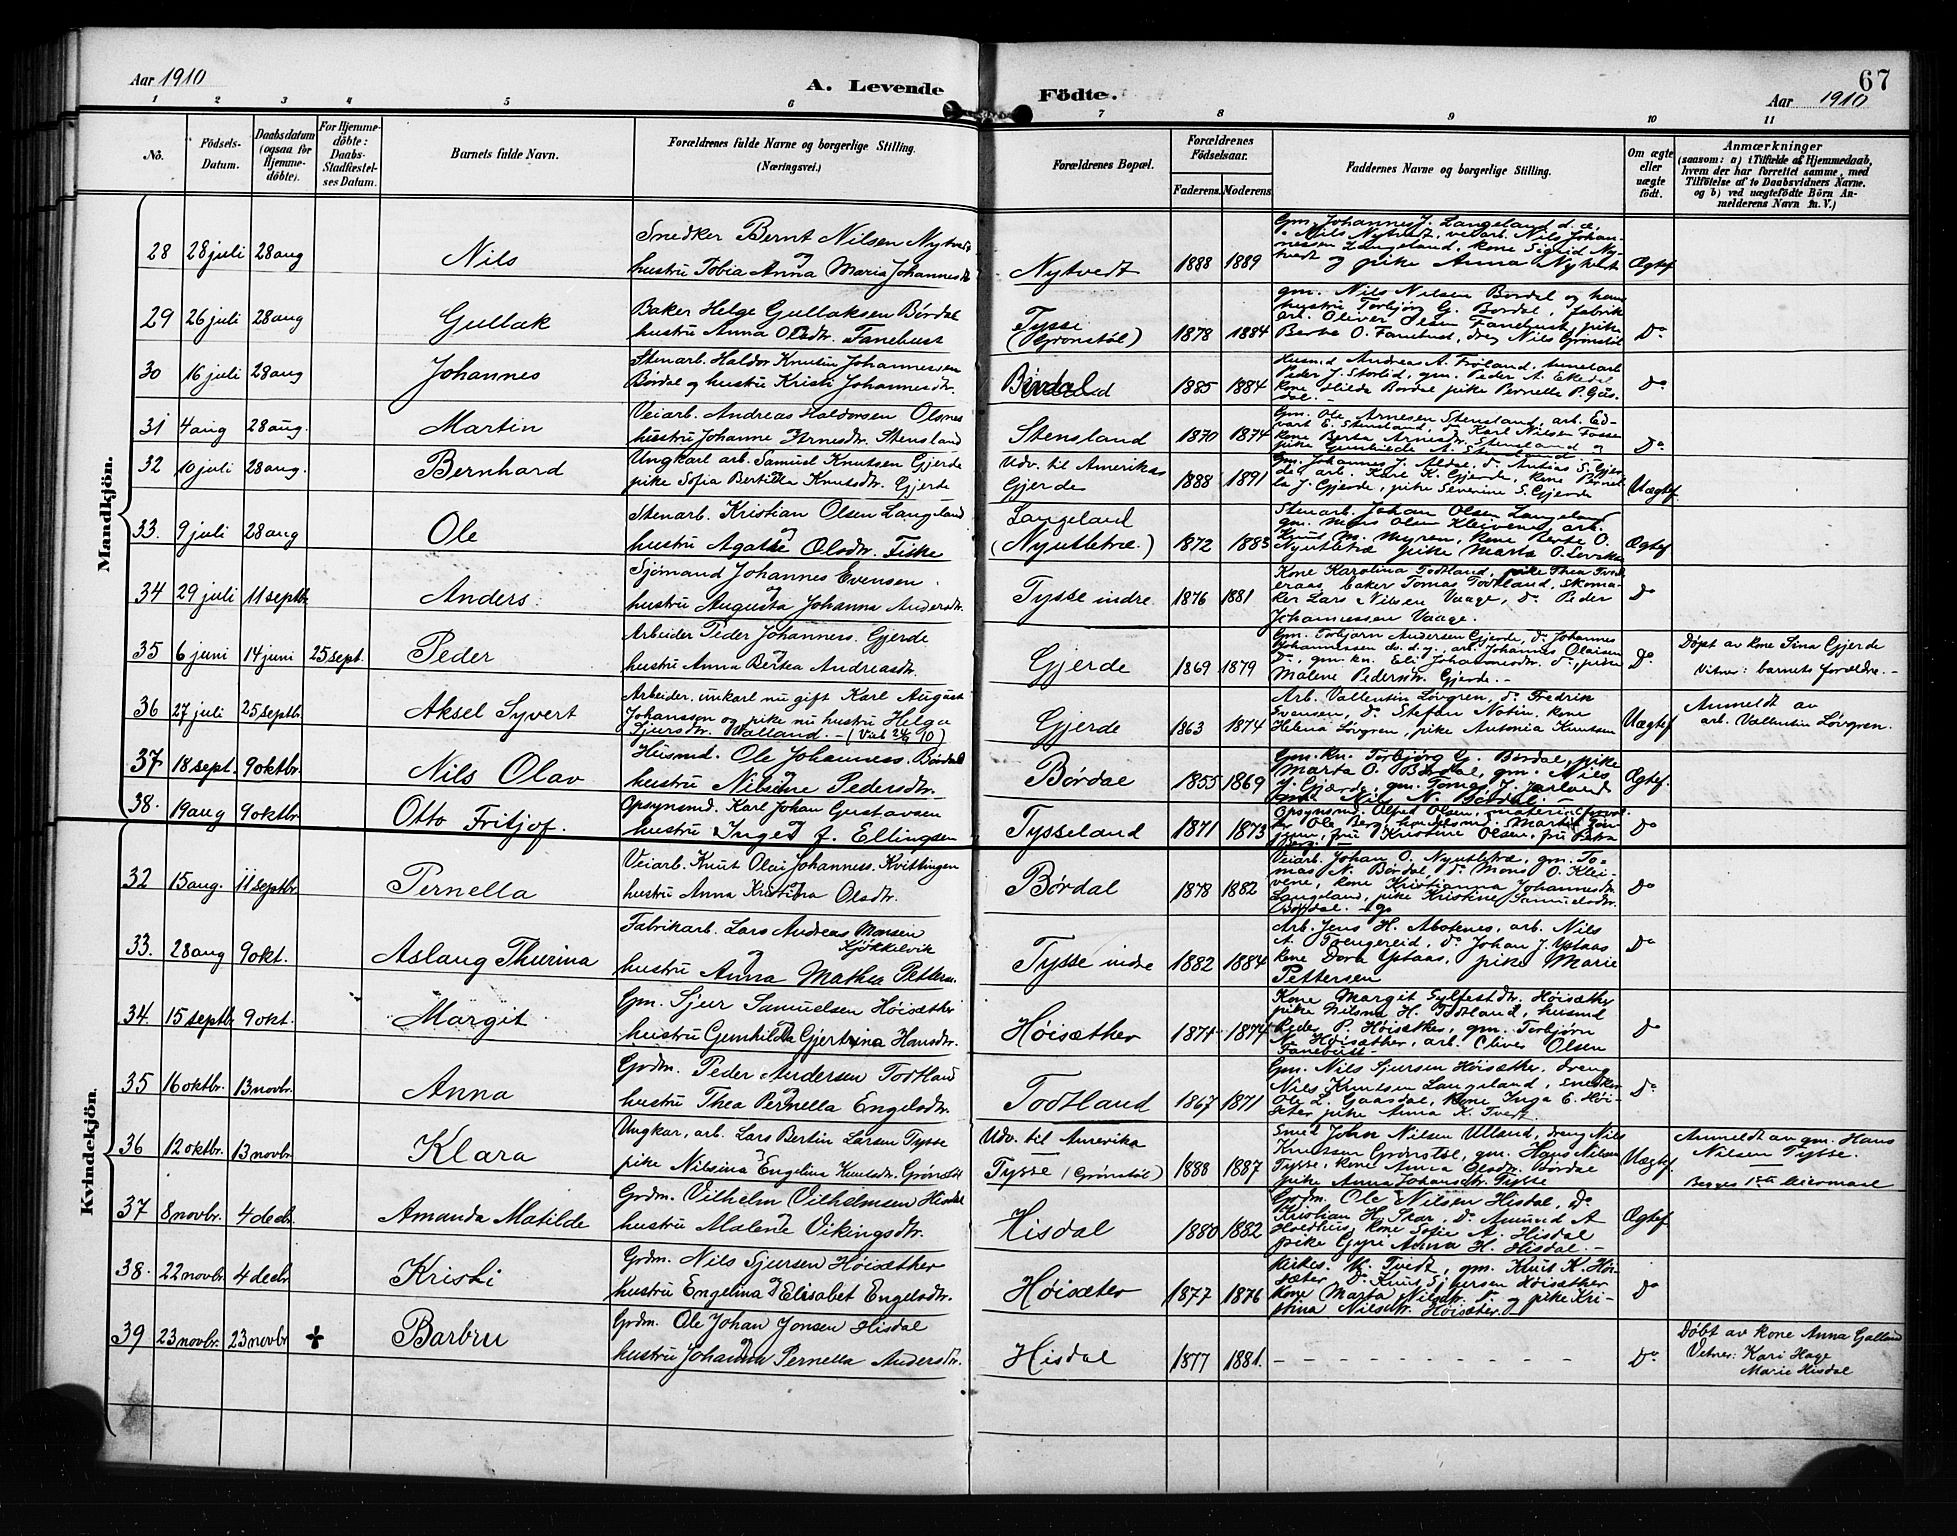 Aar 1910
A. Levende
Födte.
67
Aar 1910
1 2 3 4 5 6 7 8 9 10 11
No.
Födsels-
Datum.
Daabsdatum
(ogsaa for
Hjemme-
döbte).
For Hjemme-
döbte:
Daabs-
Stadfæstel-
ses Datum.
Barnets fulde Navn.
Forældrenes fulde Navne og borgerlige Stilling.
(Næringsvei.)
Forældrenes Bopæl.
Forældrenes
Födselsaar.
Faderens. Moderens.
Faddernes Navne og borgerlige Stilling.
Om ægte
eller
uægte
födt.
Anmærkninger
(saasom: a) i Tilfælde af Hjemmedaab,
hvem der har forrettet samme, med
Tilföielse af to Daabsvidners Navne.
og b) ved uægtefödte Börn An-
melderens Navn m. V.)
Mandkjön.
28 28 juli 28 aug Nils
Snedker Bernt Nilsen Nytvedt
og
hustru Tobia Anna Maria Johannesdtr
Nytvedt 1888 1889
Gm. Johannes J. Langeland, d.e.
Nils Nytvedt, veiarb. Nils Johan-
nessen Langeland, kone Sigrid Ny-
tvedt og pike Anna Nytvedt
Ægtef.
29 26 juli 28 aug Gullak
Baker Helge Gullaksen Børdal
hustru Anna Olsdtr. Fanebust
Tysse
(Grønstøl) 1878 1884
gm. Nils Nilsen Børdal og hans
hustru Torbjør G. Børdal, fabrik
arb. Oliver Olsen Fanebust, pike
Berta O. Fanebust, dreng Nils Grønstøl
Do
30 16 juli 28 aug Johannes
Stenarb. Haldor Knutsen Johannessen
Børdal og hustru Kristi Johannesdtr.
Børdal 1885 1884
Husmd Andreas A. Frøland, Anne arb
Peder J. Storlid, gm. Peder A. Ekedal
kone Hilda Børdal pike Pernelle P. Gus-
dal. -
Do
31 4 aug 28 aug. Martin
Veiarb. Andreas Haldorsen Olsnes
og
hustru Johanne Arnesdtr. Stensland
Stensland 1870 1874
Gm. Ole Arnesen Stensland, arb. Ed-
vart E. Stensland, do Karl Nilsen Fosse
kone Berta Arnesdtr. Stensland og
pike Gunhilde A. Stensland
Do
32 10 juli 28 aug. Bernhard
Ungkarl arb. Samuel Knutsen Gjerde
pike Sofia Bertilda Knutsdtr. Gjerde
Udv. til Amerika
Gjerde 1888 1891
Gm. Johannes J. Aldal, do Antias S. Gjer-
de, arb. Karl K. Gjerde, kone Pernel-
le J. Gjerde, pike Severine S. Gjerde
Uægtef.
33. 9 juli 28 aug Ole
Stenarb. Kristian Olsen Langeland
og
hustru Agathe Olsdtr. Fiske
Langeland
(Nyutletræ.) 1872 1883
Stenarb. Johan Olsen Langeland
gm. Mons Olsen Kleivene, arb.
Knut M. Myren, kone Berte O.
Nyutletræ pike Marta O.
Ægtef.
34 29 juli 11 septbr. Anders.
Sjømand Johannes Evensen
og
hustru Augusta Johanna Andersdtr.
Tysse indre 1876 1881
Kone Karolina Todtland, pike Thea Tved-
eraas, baker Tomas Todtland, skoma-
ker Lars Nilsen Vaage, do Peder
Johannessen Vaage.
Do
35 6 juni 14 juni 25 sept. Peder
Arbeider Peder Johanness. Gjerde
og
hustru Anna Bertea Andreasdtr.
Gjerde 1869 1879
Gm. Torbjørn Andersen Gjerde, do Johannes
Johannessen do. d.y., arb. Johannes Olaisen
do, gm.kn. Eli Johannesdtr. do, pike
Malene Pedersdtr. Gjerde. -
Do
Døpt av kone Sina Gjerde
Vitner: barnets forældre. -
36 27 juli 25 septbr. Aksel Syvert
Arbeider, unkarl nu gift Karl August
Johansson og pike nu hustru Helga
Sjursdtr. Walland. - (Viet 24/9 10)
Gjerde 1863 1874
Arb. Vallentin Løvgren, do Fredrik
Svensen, do Stefan Notin, kone
Helena Løvgren, pike Antonia Knutsen
Uægtef.
Anmeldt av
arb. Vallentin Løvgren.
37 18 sept. 9 oktbr. Nils Olav
Husmd. Ole Johanness. Børdal
og
hustru Nilsine Pedersdtr.
Børdal 1855 1869
Gm.kn. Torbjørg G. Børdal, pike
Marta O. Børdal, gm. Nils
J. Gjærde, gm. Tomas J. Jarland
Nils N. Børdal. -
Ægtef.
38. 19 aug 9 oktbr. Otto Fritjof.
Opsynsmd. Karl Johan Gustavsen
og
hustru Inga f. Ellingsen
Tysseland 1871 1873
Opsynsm. Alfred Olsen, materialforval-
ter Ole Berg, handelsmd. Martin
fru Kristine Olsen, fru Petra
Berg. -
Do
Kvindekjön.
32 15 aug. 11 septbr. Pernella
Veiarb. Knut Olai Johanness. Kvittingen
og
hustru Anna Kristina Olsdtr.
Børdal 1878 1882
Veiarb. Johan O. Nyutletræ, gm. To-
mas N. Børdal, do Mons O. Klei-
vene, kone Kristianna Johannesdtr.
Langeland, pike Kristine Samuelsdtr.
Børdal.
Do
33. 28 aug 9 okt. Aslaug Thurina
Fabrikarb. Lars Andreas Monsen
Kjøkkelvik
og
hustru Anna Mathea Petters.
Tysse indre 1882 1884
Arb. Jens H. Abotenes, arb. Nils
A. Tvengereid, do Johan J. Ystaas
kone Dora Ystaas, pike Marie
Pettersen
Do
34. 15 septbr 9 okt. Margit
Gm. Sjur Samuelsen Høisæther
og
hustru Gunhilda Gjertrina Hansdtr.
Høisæther 1871 1874
Kone Margit Sylfestdtr. Høisæther
pike Nilsina H. Todtland, husmd
Peder P. Høisæther, gm. Torbjørn
N. Høisæther, arb. Oliver Olsen
Fanebust -
Do
35 16 oktbr. 13 novbr. Anna
Grdm. Peder Andersen Todtland
og
hustru Thea Pernella Engelsdtr.
Todtland 1867 1871
Gm. Nils Sjursen Høisæther, dreng
Nils Knutsen Langeland, snedker
Ole L. Gaasdal, kone Inga E. Høi-
sæter pike Anna K. Tvedt
Do
36 12 oktbr. 13 novbr. Klara
Ungkar, arb. Lars Bertin Larsen Tysse
og
pike Nilsina Engelina Knutsdtr. Grønstøl
Udv. til Amerika
Tysse (Grønstøl) 1888 1887
Smed John Nilsen Ulland, dreng Nils
Knutsen Grønstøl, gm. Hans Nilsen
Tysse, kone Anna Olsdtr. Børdal
pike Anna Johansdtr. Tysse
Uægtef.
Anmeldt av gm. Hans
Nilsen Tysse.
Begges 1ste leiermaal
37 8 novbr. 4 decbr. Amanda Matilde
Grdm. Vilhelm Vilhelmsen Hisdal
og
hustru Malene Vikingsdtr.
Hisdal 1880 1882
Grdm. Ole Nilsen Hisdal, do
Kristian H. Skar, do Amund A
Holdhus, kone Sofie A. Hisdal
pike Gyri Anna H. Hisdal. -
Ægtef.
38. 22 novbr. 4 decbr. Kristi
Grdm. Nils Sjursen Høisæther
og
hustru Engelina Elisabet Engelsdtr.
Høisæter 1877 1876
Kirkes. M. Tvedt, gm. Knut K. Høi-
sæter, do Knut Sjursen Høisæther
kone Marta Nilsdtr. do og pike Kri-
stina Nilsdtr. Høisæther.
Do
39 23 novbr. 23 novbr. ✝ Barbru
Grdm. Ole Johan Jonsen Hisdal
og
hustru Johanna Pernella Andersdtr.
Hisdal 1877 1881.
- - - - - - - - - -
Do
Døbt av kone Anna Galland
Vetner: Kari Hage
Marie Hisdal